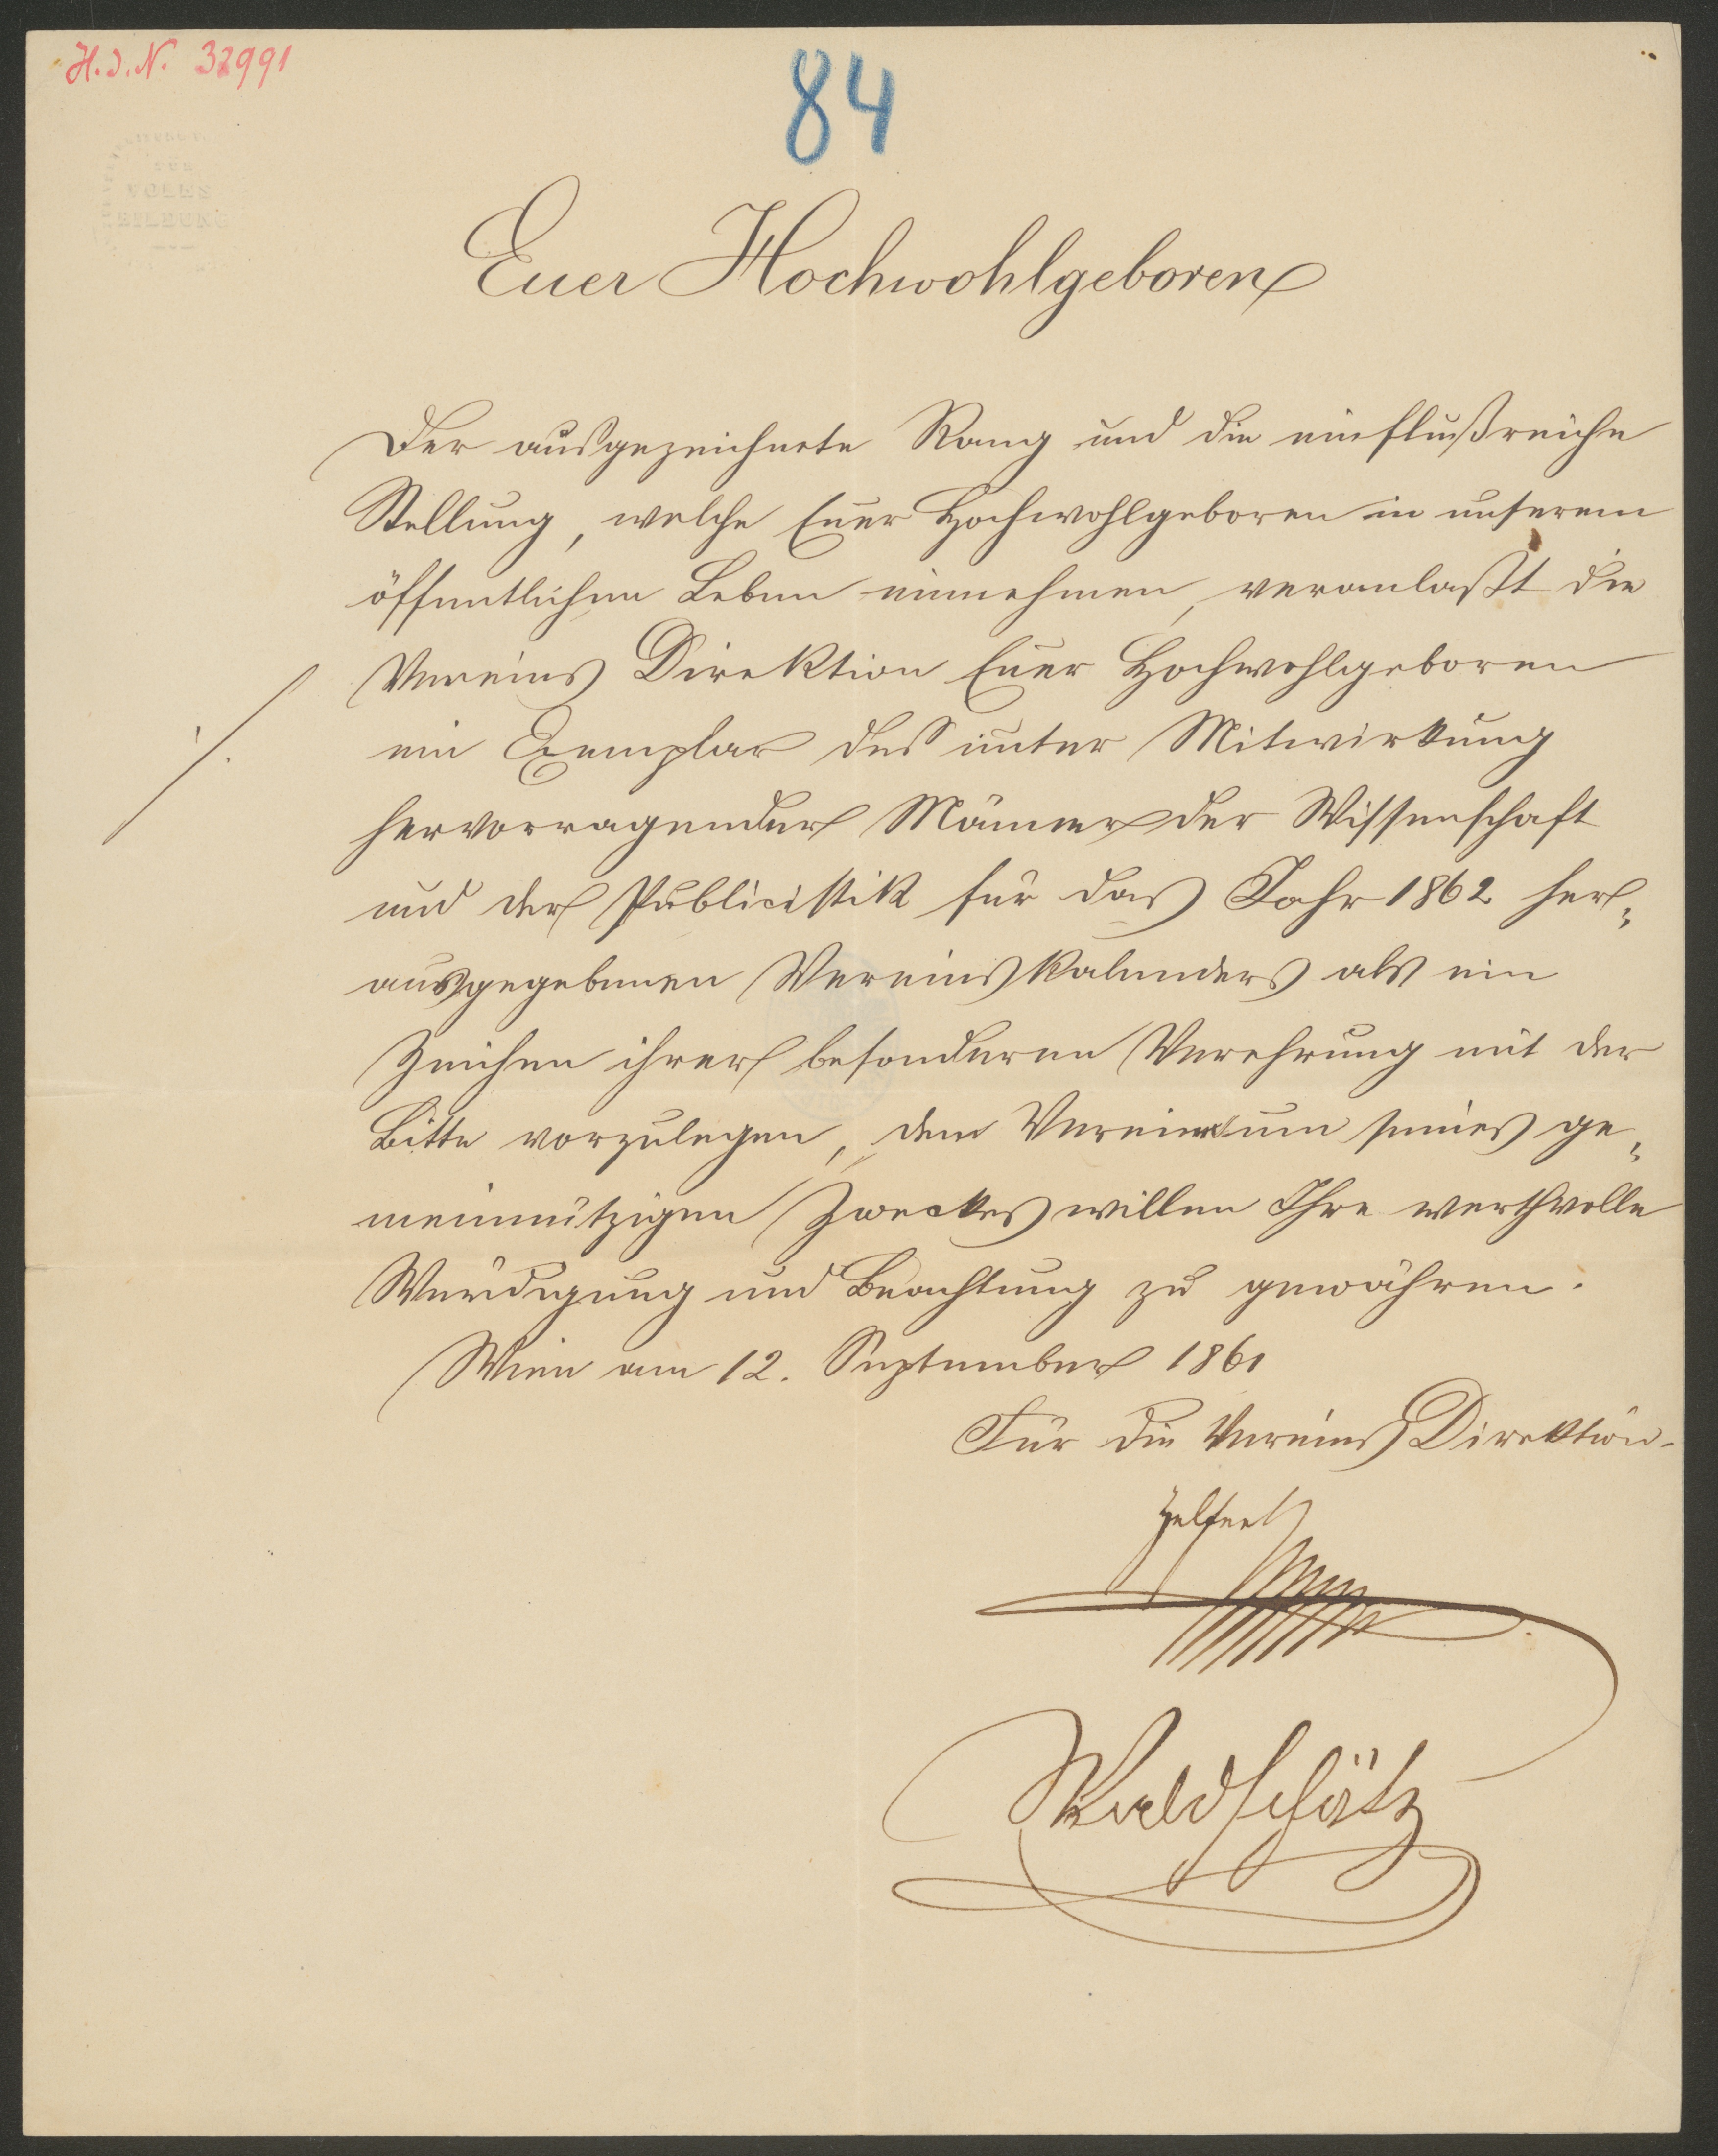 H.J.N. 32991
84
FÜR
VOLKS
Euer Hochwohlgeboren
Der ausgezeichnete Rang und die einflußreiche
Stellung, welche Euer Hochwohlgeboren in unserem
öffentlichen Leben einnehmen, veranlaßt die
Vereins Direktion Euer Hochwohlgeboren
./.
ein Exemplar des unter Mitwirkung
hervorragender Männer der Wissenschaft
und der Publicistik für das Jahr 1862 her=
ausgegebenen Vereinskalenders als ein
Zeichen ihrer besonderen Verehrung mit der
Bitte vorzulegen, dem Verein um seines ge=
meinnützigen Zweckes willen Ihre werthvolle
Würdigung und Beachtung zu gewähren.
Wien am 12. September 1861
Für die Vereins Direktion.
Helfert
Waldschütz